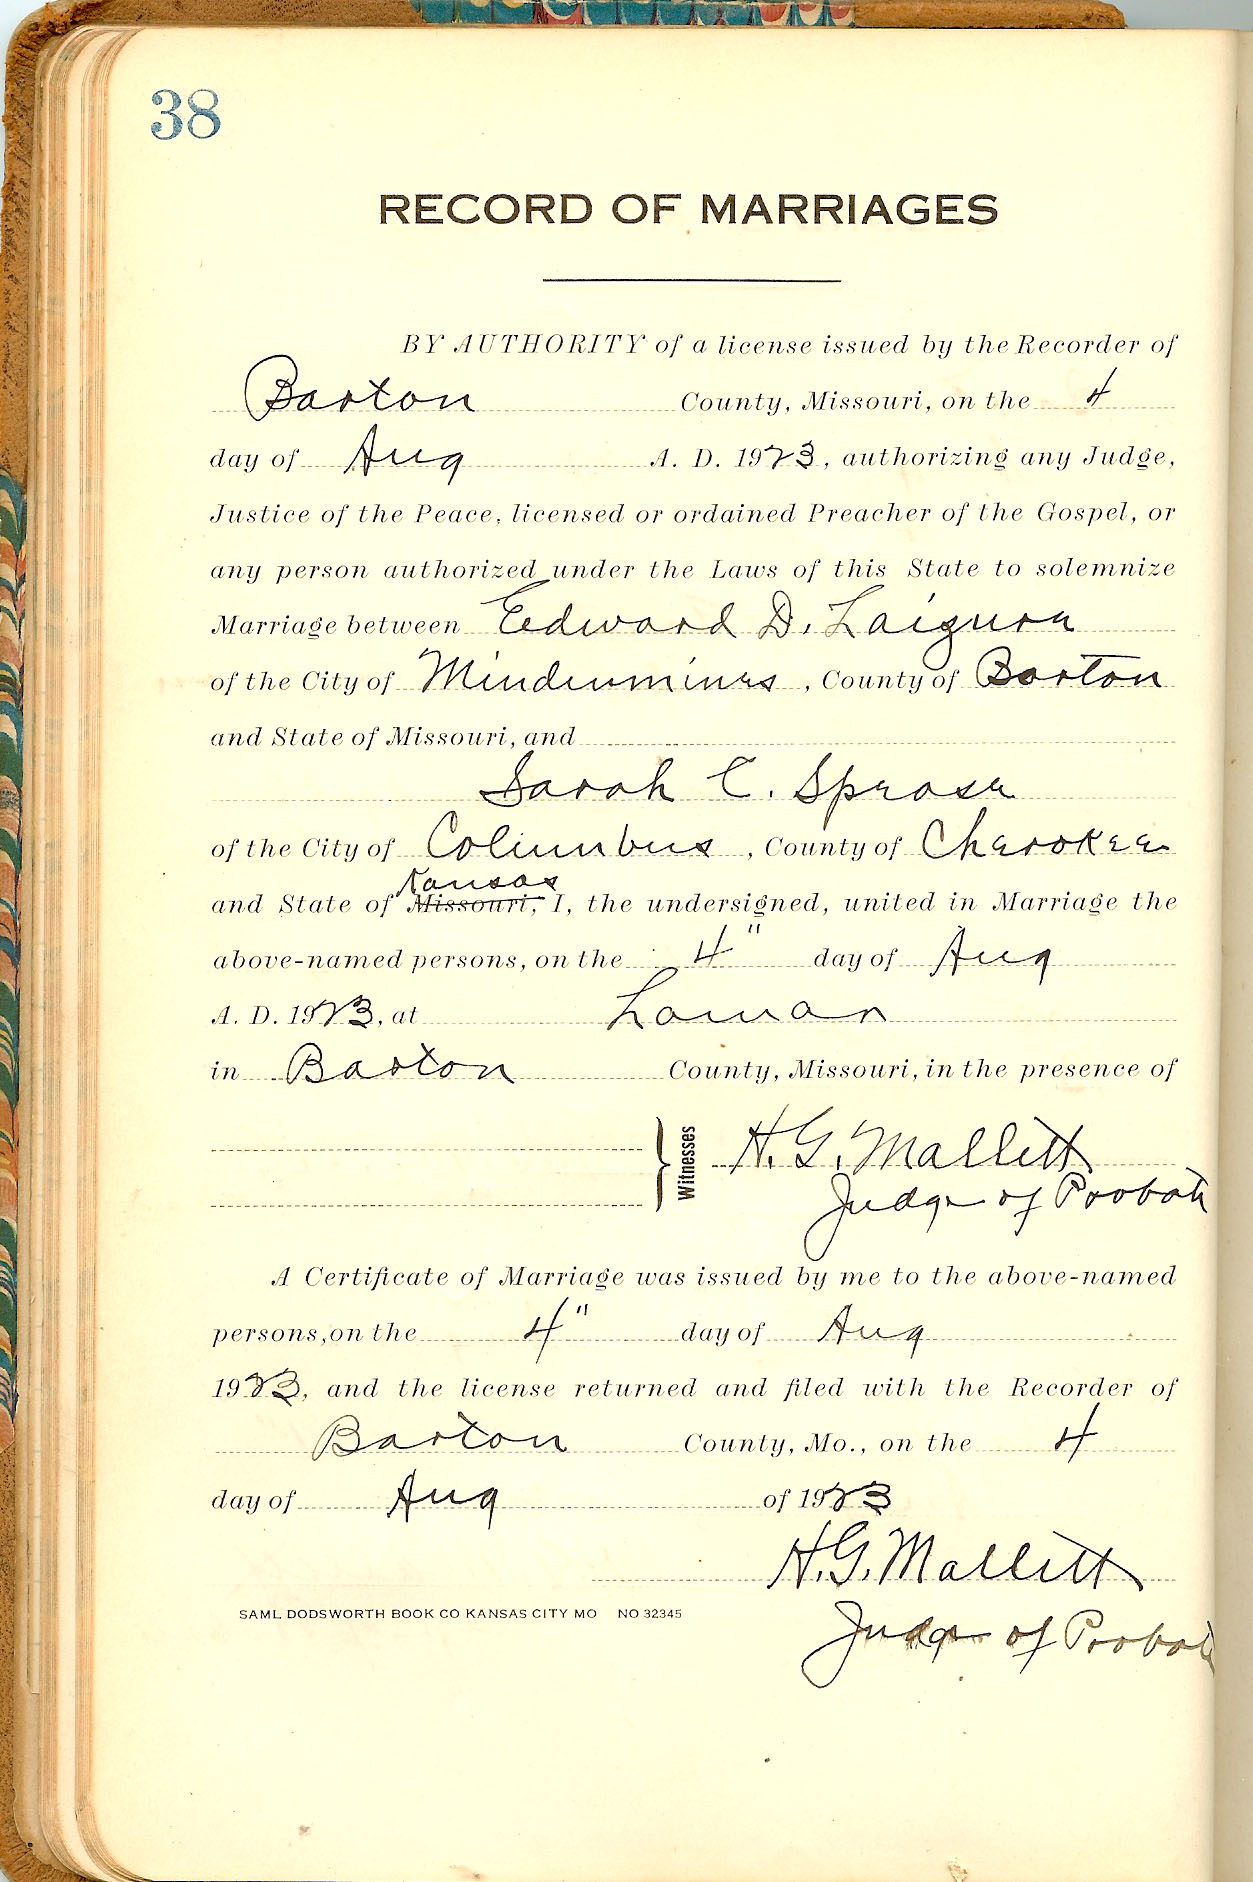 38
RECORD OF MARRIAGES
BY AUTHORITY of a license issued by the Recorder of
Barton County, Missouri, on the 4
day of Aug A. D. 1923, authorizing any Judge,
Justice of the Peace, licensed or ordained Preacher of the Gospel, or
any person authorized under the Laws of this State to solemnize
Marriage between Edward D.
of the City of Mindenmines, County of Barton
and State of Missouri, and
Sarah C.
of the City of Columbus, County of Cherokee
Kansas
and State of Missouri, I, the undersigned, united in Marriage the
above-named persons, on the 4" day of Aug
A. D. 1923, at Lamar
in Barton County, Missouri, in the presence of
Witnesses H. G. Mallitt
Judge of Probate
A Certificate of Marriage was issued by me to the above-named
persons, on the 4" day of Aug
1923, and the license returned and filed with the Recorder of
Barton County, Mo., on the 4
day of Aug of 1923
H. G. Mallitt
SAML DODSWORTH BOOK CO KANSAS CITY MO NO 32345
Judge of Probate